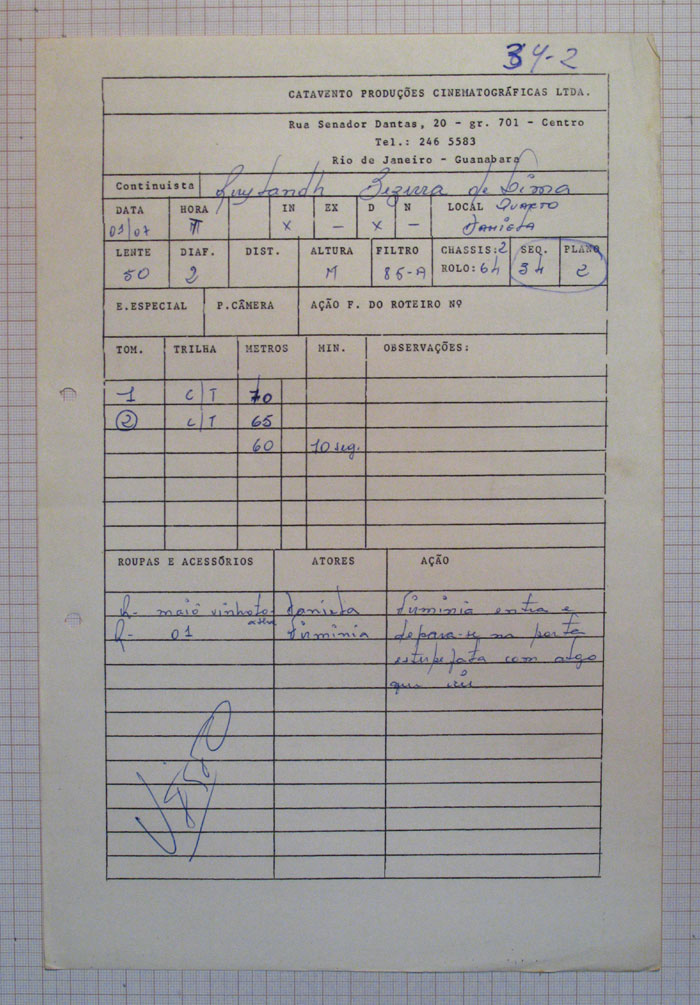 34-2
CATAVENTO PRODUÇÕES CINEMATOGRÁFICAS LTDA.
Rua Senador Dantas, 20 - gr. 701 - Centro
Tel.: 246 5583
Rio de Janeiro - Guanabara
Continuista Bezerra de Lima
DATA HORA IN EX D N LOCÁL QUARTO
01/07 X — X — DANIELA
LENTE DIAF. DIST. ALTURA FILTRO CHASSIS: 2 SEQ. PLANO
50 2 M 85-A ROLO: 64 34 2
E.ESPECIAL P.CÂMERA AÇÃO F. DO ROTEIRO Nº
TOM. TRILHA METROS MIN. OBSERVAÇÕES:
1 C/T 70
2 C/T 65
60 10 seg.
ROUPAS E ACESSÓRIOS ATORES AÇÃO
R- maiô vinhoto Daniela Firminia entra e
R- 01 Firminia depara-se na porta
estupefata com algo
que viu